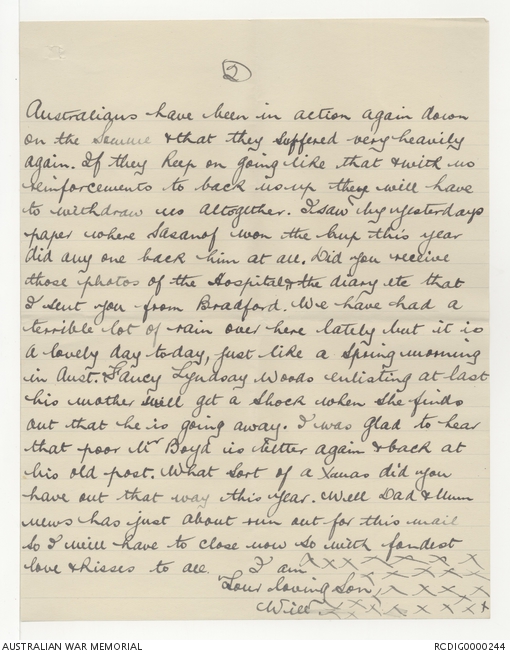 2
Australians have been in action again down
on the Somme & that they suffered very heavily
again. If they keep on going like that & with no
reinforcements to back us up they will have
to withdraw us altogether. I saw by yesterdays
paper where Sasanof won the Cup this year
did any one back him at all. Did you receive
those photos of the Hospital & the diary etc that
I sent you from Bradford. We have had a
terrible lot of rain over here lately but it is
a lovely day today, just like a Spring morning
in Aust. Fancy Lyndsay Woods enlisting at last
his mother will get a shock when she finds
out that he is going away. I was glad to hear
that poor Mr Boyd is better again & back at
his old post. What sort of a Xmas did you
have out that way this year. Well Dad & Mum
news has just about run out for this mail
so I will have to close now so with fondest
love & kisses to all. I am x x x x x x x x x
Your loving Son, x x x x x x
Will x x x x x x x x
AUSTRALIAN WAR MEMORIAL
RCDIG0000244